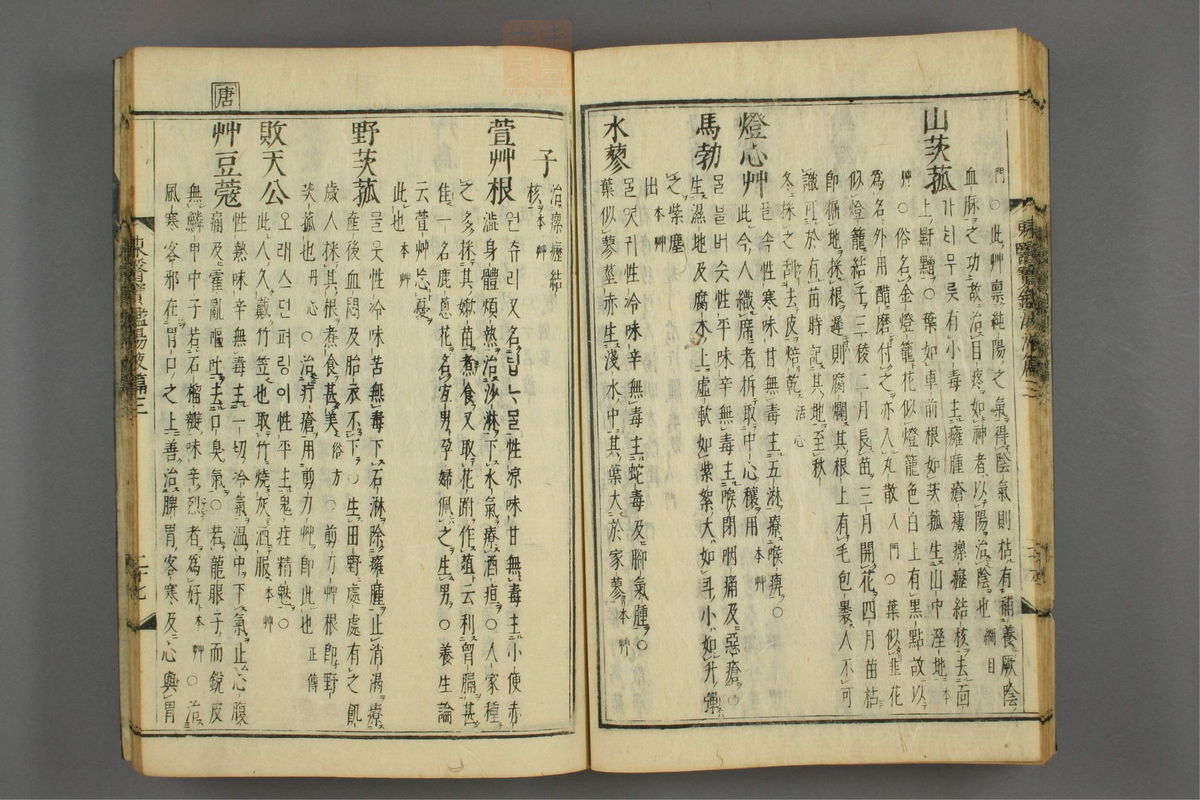 門○此艸稟純陽之氣得陰氣則枯有補養厥陰
血脉之功故治目疼如神者以陽治陰也綱目
山茨菰 가𠆤무릇有小毒主癰腫瘡瘻瘰癧結核去面
上野䵟○葉如車前根如茨菰生山中溼地本
艸○俗名金燈籠花似燈籠色白上有黑點故以
爲名外用醋磨付之亦入丸散入門○葉似韭花
似燈籠結子三稜二月長苗三月開花四月苗枯
即掘地採根遲則腐爛其根上有毛包裹人不可
識可於有苗時記其地至秋
冬採之刮去皮焙乾活心
燈心艸 골속性寒味甘無毒主五淋療喉痺○
此今人織席者拆取中心穰用本艸
馬勃 믈블버슷性平味辛無毒主喉閉咽痛及惡瘡○
生濕地及腐木上虛軟如紫絮大如斗小如升彈
之紫塵
出本艸
水蓼 믈엿귀性冷味辛無毒主蛇毒及脚氣腫○
葉似蓼莖赤生淺水中其葉大於家蓼本艸
子 治瘰癧結
核本艸
萱艸根 원추리又名넙ᄂᆞ믈性凉味甘無毒主小便赤
澁身體煩熱治沙淋下水氣療酒疸○人家種
之多採其嫩苗煮食又取花跗作葅云利胷膈甚
佳一名鹿葱花名宜男孕婦佩之生男○養生論
云萱艸忘憂
此也本艸
野茨菰 믈옷性冷味苦無毒下石淋除癰腫止消渴療
産後血悶及胎衣不下○生田野處處有之飢
歲人採其根煮食甚美俗方○剪刀艸根即野
茨菰也丹心○治疔瘡用剪刀艸即此也正傳
敗天公 오래스던펴랑이性平主鬼疰精魅○
此人久戴竹笠也取竹燒灰酒服本艸
唐
艸豆蔲 性熱味辛無毒主一切冷氣溫中下氣止心腹
痛及霍亂嘔吐去口臭氣○若龍眼子而銳皮
無鱗甲中子若石榴瓣味辛烈者爲好本艸○治
風寒客邪在胃口之上善治脾胃客寒及心與胃
東醫寶鑑湯液篇三
二十七